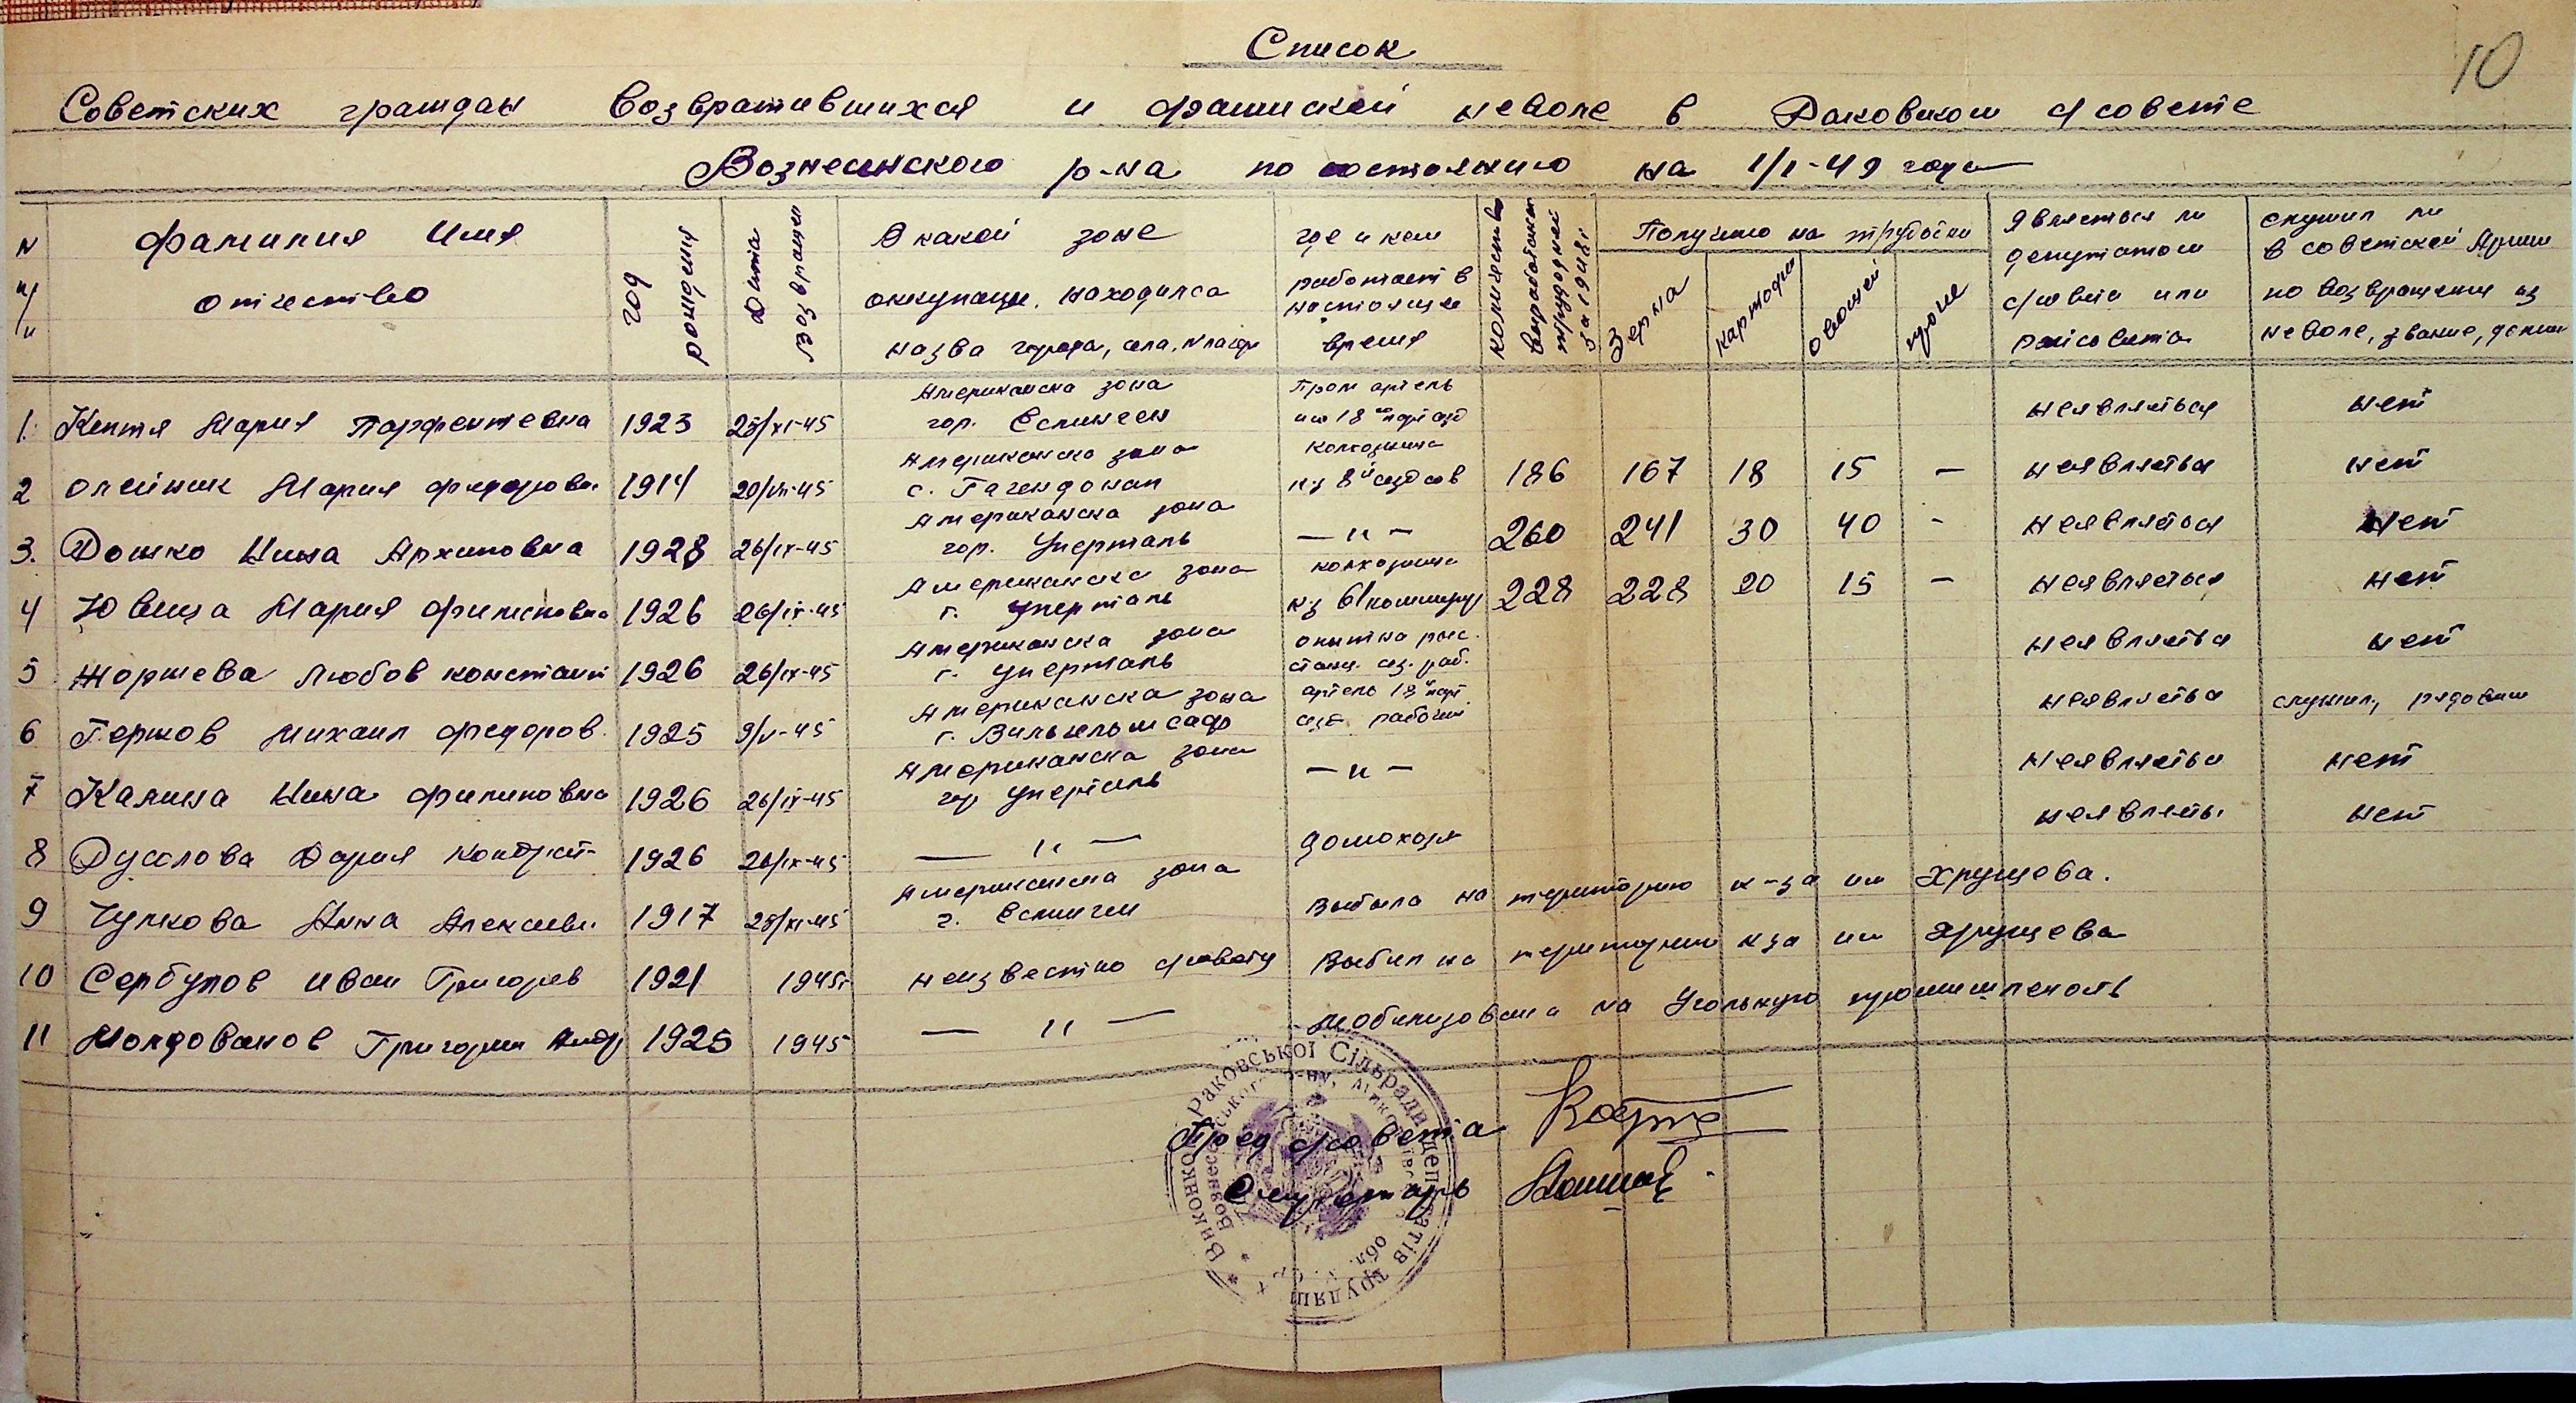 10
Список
Советских граждан Возвратившихся и фашиской неволе в Раковском с/совете
Вознесенского р-на по состоянию на 1/I-49 года
N п/п Фамилия Имя отчество год рождения Дата возвращен В какой зоне оккупации. находился назва города, села, N лагер где и кем работает в настоящее время количество выработанных трудодней за 1948г Получено на трудодни Зерна картофел овощей проче Является ли депутатом с/совета или райсовета служил ли в советской Армии по возвращении из неволе, звание, должн
1. Мария Парфентевна 1923 28/XI-45 Американска зона гор. Еслинген Пром артель им 18 партсъезд неявляеться нет
2 Олейник Мария Федоровна 1914 20/VII-45 Американска зона с. колхозница к-з 8й съезд сов 186 167 18 15 — неявляется нет
3. Дошко Нина Архиповна 1928 26/IX-45 Американска зона гор. Уперталь — " — 260 241 30 40 - неявляется нет
4 Мария Филиповна 1926 26/IX-45 Американска зона г. Уперталь колхозница к-з 228 228 20 15 — неявляеться нет
5 Жоржева Любов констант 1926 26/IX-45 Американска зона г. Уперталь раб. неявляется нет
6 Михаил Федоров. 1925 9/V-45 Американска зона г. артель 18 парт сьез рабочий неявляется служил, рядовым
7 Калина Нина Филиповна 1926 26/IX-45 Американска зона гор Уперталь — " — неявляется нет
8 Дария Кондрат- 1926 26/IX-45 — " — домохозя неявляеть нет
9 Чулкова Анна Алексеевн. 1917 28/XI-45 Американска зона г. Еслинген Выбыла на територию к-за им Хрущева.
10 Сербулов Иван Григорев 1921 1945г неизвестно с/совету Выбыл на територию к-за им Хрущева
11 Молдованов Григорий Андр 1925 1945 — " — мобилизован на Угольную промишленость
Виконком Раковської Сільради депутатів трудящ
Вознесенського р-ну, Миколаївської обл.
Пред с/совета
Секретарь